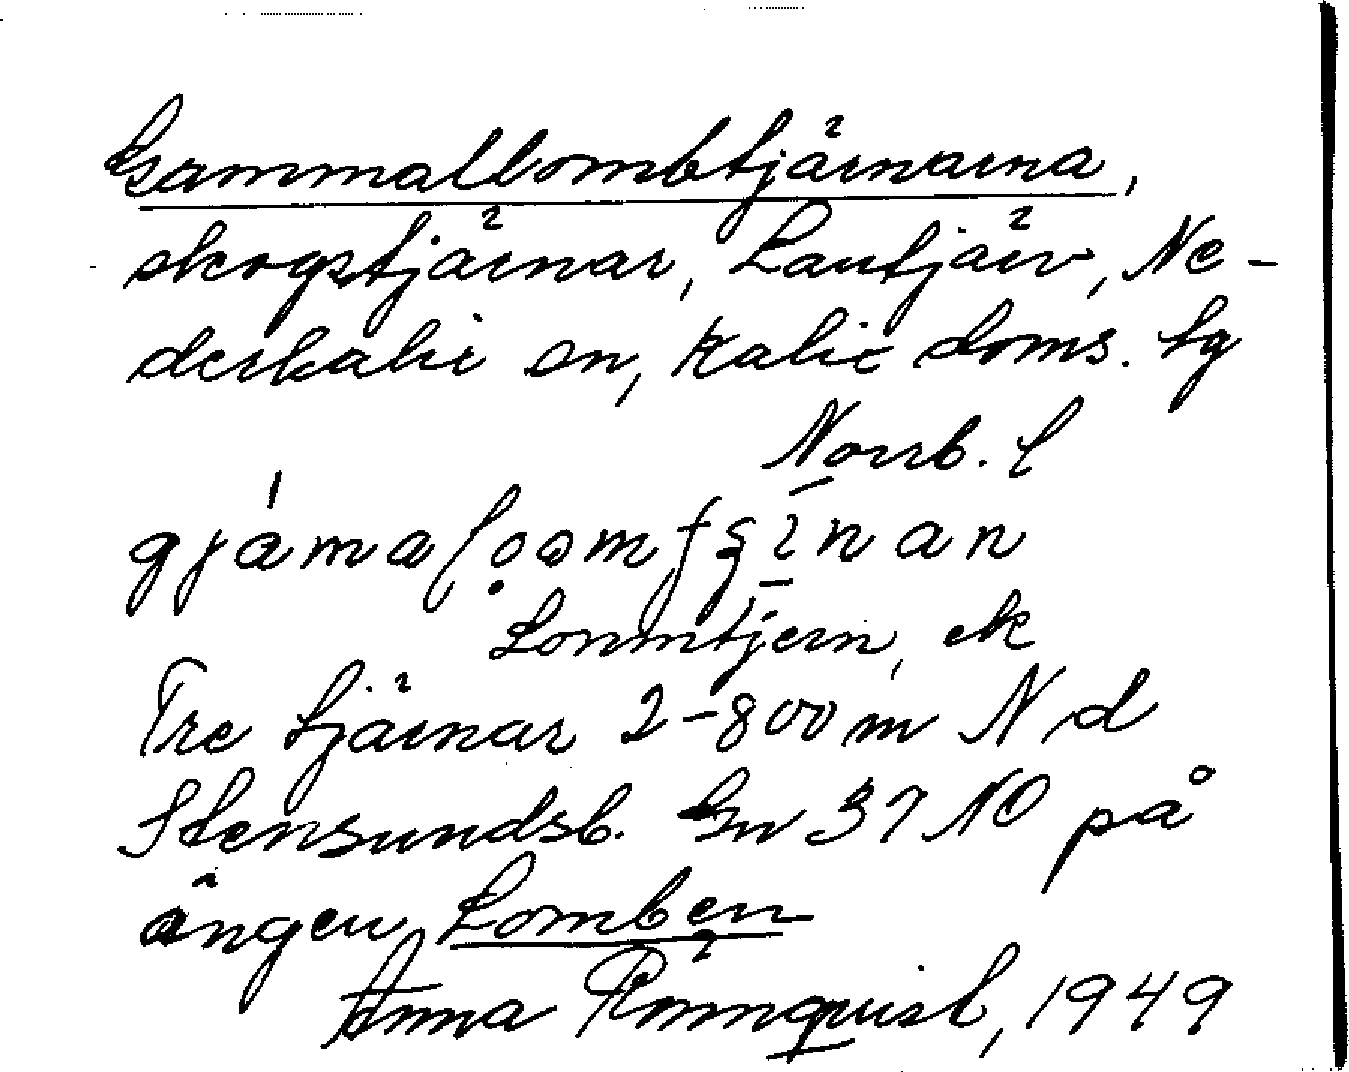 Gammallombtjärnarna,
skogstjärnar, Lautjärv, Ne-
derkalix sn, Kalix doms. tg
Norrb. l
Lommtjern, ek
Tre tjärnar 2-800 m N d
Stensundsb. Gn 37 NO på
ängen Lomben
Anna Rönnquist, 1949